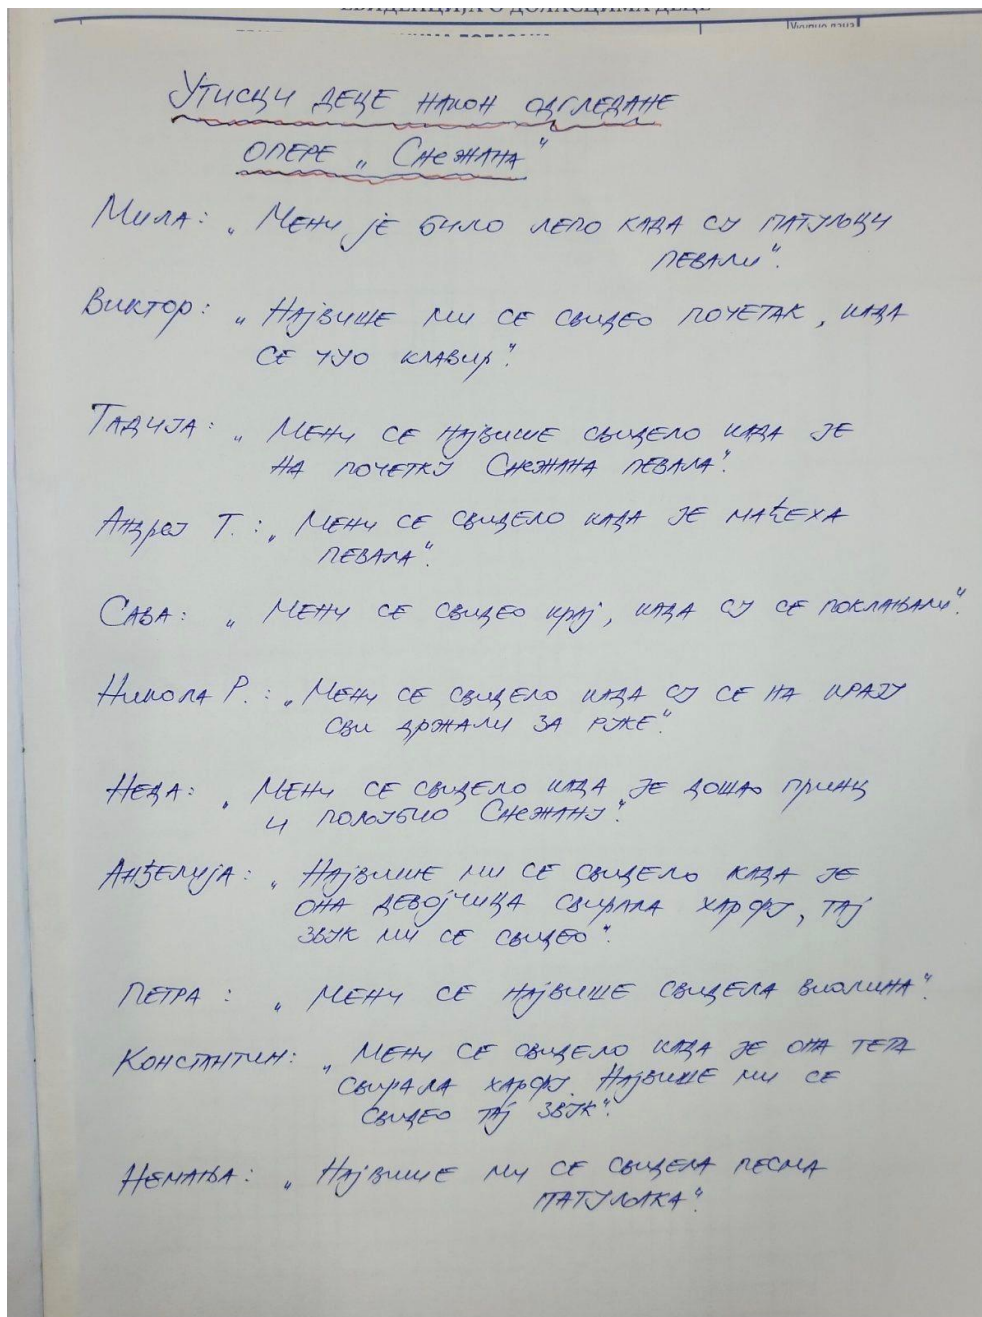 ЕВИДЕНЦИЈА О ДОЛАСЦИМА ДЕЦЕ
Укупно дана
Утисци деце након одгледане
опере „Снежана“
Мила: „Мени је било лепо када су патуљци
певали“.
Виктор: „Највише ми се свидео почетак, када
се чуо клавир“.
Тадија: „Мени се највише свидело када је
на почетку Снежана певала“.
Андреј Т.: „Мени се свидело када је маћеха
певала“.
Сава: „Мени се свидео крај, када су се поклањали“.
Никола Р.: „Мени се свидело када су се на крају
сви држали за руке“.
Неда: „Мени се свидело када је дошао принц
и пољубио Снежану“.
Анђелија: „Највише ми се свидело када је
она девојчица свирала харфу, тај
звук ми се свидео“.
Петра: „Мени се највише свидела виолина“.
Константин: „Мени се свидело када је она тета
свирала харфу. Највише ми се
свидео тај звук“.
Немања: „Највише ми се свидела песма
патуљака“.